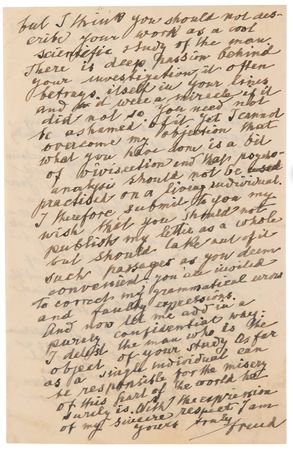 but I think you should not des-
cribe your work as a cool
scientific study of the man.
There is deep passion behind
your investigation, it often
betrays itself in your lines
and it were a miracle if it
did not so. You need not
be ashamed of it. Yet I cannot
overcome my objection that
what you have done is a bit
of vivisection and that psycho-
analysis should not be used
practised on a living individual.
I therefore submit to you my
wish that you should not
publish my letter as a whole
but should take out of it
such passages as you deem
convenient. You are invited
to correct my grammatical errors
and faulty expressions.
And now let me add in a
purely confidential way:
I detest the man who is the
object of your study. As far
as a single individual can
be responsible for the misery
of this part of the world he
surely is. With the expression
of my sincere respect I am
yours truly
Freud